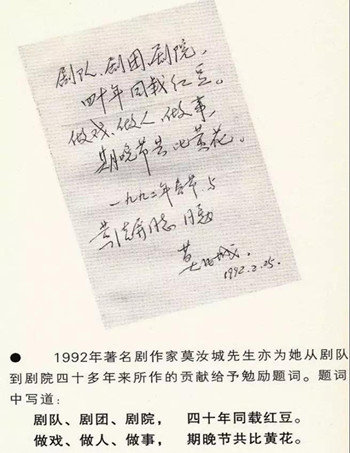 剧队、剧团、剧院,
四十年同载红豆。
做戏、做人、做事,
期晚节共比黄花。
一九九二年春节与
同志 共勉
莫汝城
1992.2.25.
● 1992年著名剧作家莫汝城先生亦为她从剧队
到剧院四十多年来所作的贡献给予勉励题词。题词
中写道：
剧队、剧团、剧院， 四十年同载红豆。
做戏、做人、做事， 期晚节共比黄花。